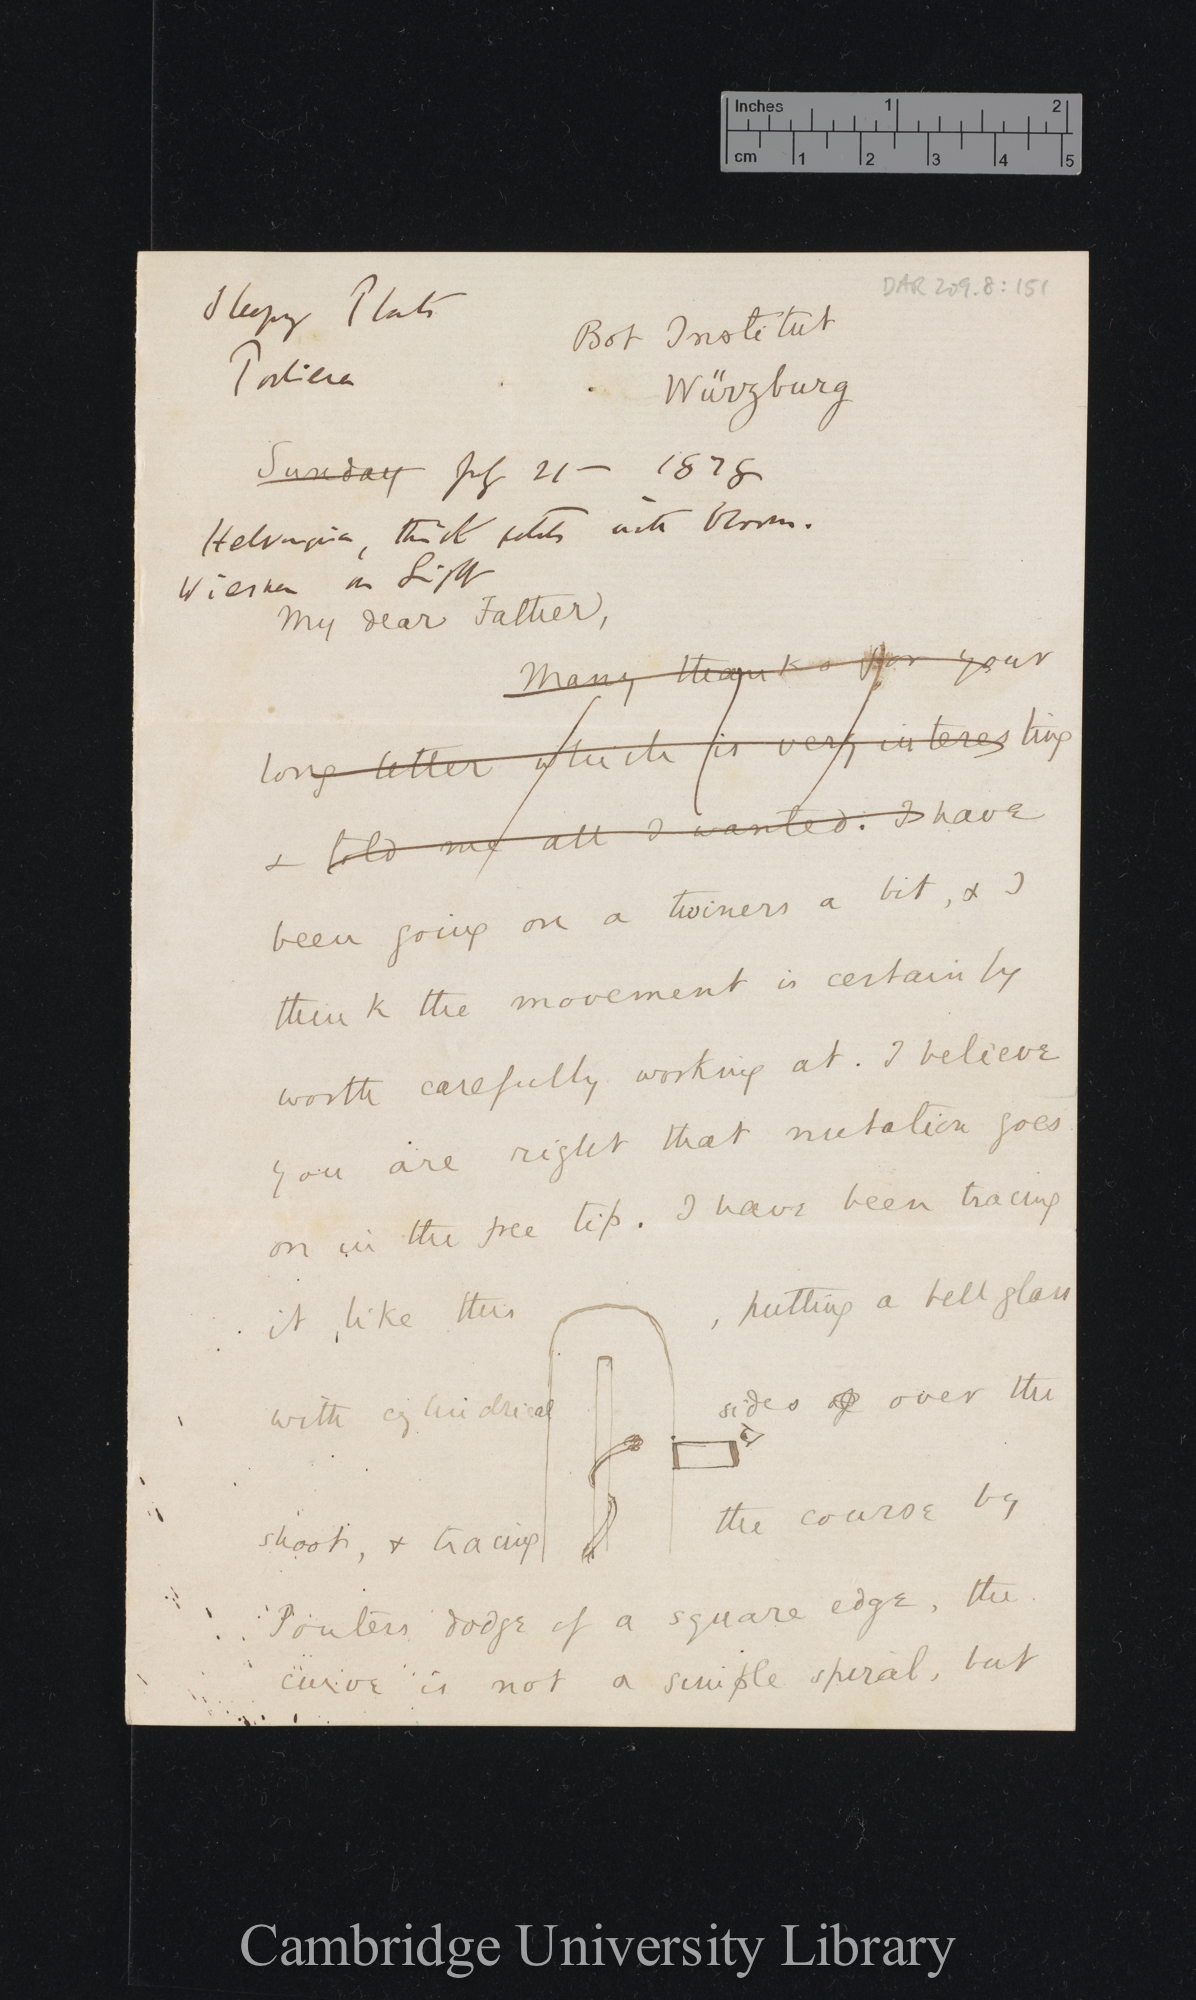 Inches 1 2
cm 1 2 3 4 5
DAR 209.8:151
Sleepy Plants
Porliera
Bot Institut
Würzburg
Sunday July 21 — 1878
thick petals with bloom.
Wiesner on Light
My dear Father,
Many thanks for your
long letter which is very interesting
& told me all I wanted. I have
been going on a twiners a bit, & I
think the movement is certainly
worth carefully working at. I believe
you are right that nutation goes
on in the free tip. I have been tracing
it like this , putting a bell glass
with cylindrical sides of over the
shoot, & tracing the course by
Pouters dodge of a square edge, the
curve is not a simple spiral, but
Cambridge University Library